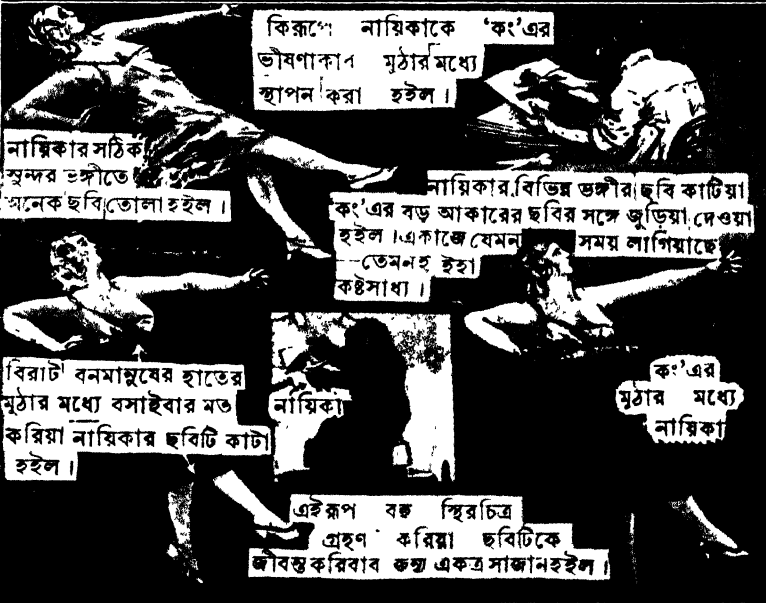 কিরূপে নায়িকাকে ‘কং’এর
ভীষণাকার মুঠার মধ্যে
স্থাপন করা হইল।
নায়িকার সঠিক
সুন্দর ভঙ্গীতে
অনেক ছবি তোলা হইল।
নায়িকার বিভিন্ন ভঙ্গীর ছবি কাটিয়া
কং’এর বড় আকারের ছবির সঙ্গে জুড়িয়া দেওয়া
হইল। একাজে যেমন সময় লাগিয়াছে
তেমনই ইহা
কষ্টসাধ্য।
বিরাট বনমানুষের হাতের
মুঠার মধ্যে বসাইবার মত
করিয়া নায়িকার ছবিটি কাটা
হইল।
নায়িকা
কং’এর
মুঠার মধ্যে
নায়িকা
এইরূপ বহু স্থিরচিত্র
গ্রহণ করিয়া ছবিটিকে
জীবন্ত করিবার জন্য একত্র সাজান হইল।